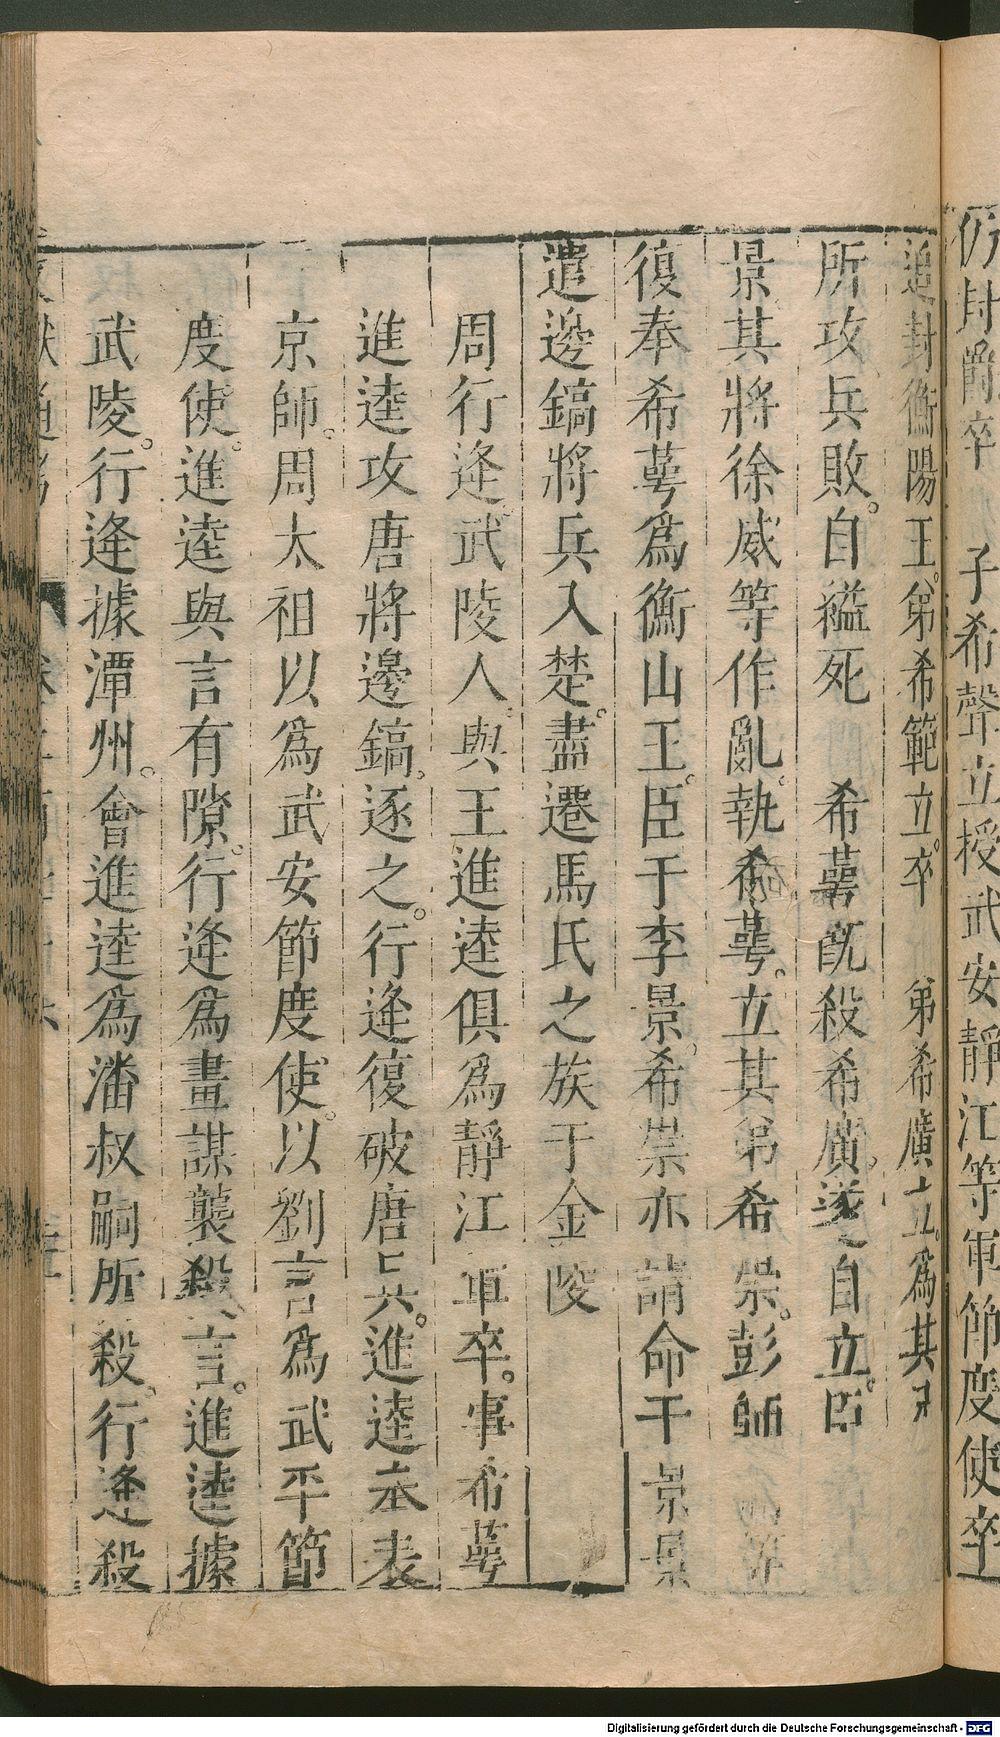 仍封爵卒 子希聲立授武安靜江等軍節度使卒
追封衡陽王。弟希範立。卒 弟希廣立。爲其
所攻兵敗。自縊死 希萼既殺希廣。遂自立。臣
景其將徐威等作亂。執希萼。立其弟希崇。彭師
復奉希萼爲衡山王。臣于李景。希崇亦請命于景景
遣邊鎬將兵入楚。盡遷馬氏之族于金陵
周行逢武陵人。與王進逵俱爲靜江軍卒。事希萼
進逵攻唐將邊鎬。逐之。行逢復破唐兵。進逵奉表
京師。周太祖以爲武安節度使。以劉言爲武平節
度使。進逵與言有隙。行逢爲畫謀襲殺言。進逵據
武陵。行逢據潭州。會進逵爲潘叔嗣所殺。行逢殺
Digitalisierung gefördert durch die Deutsche Forschungsgemeinschaft - DFG